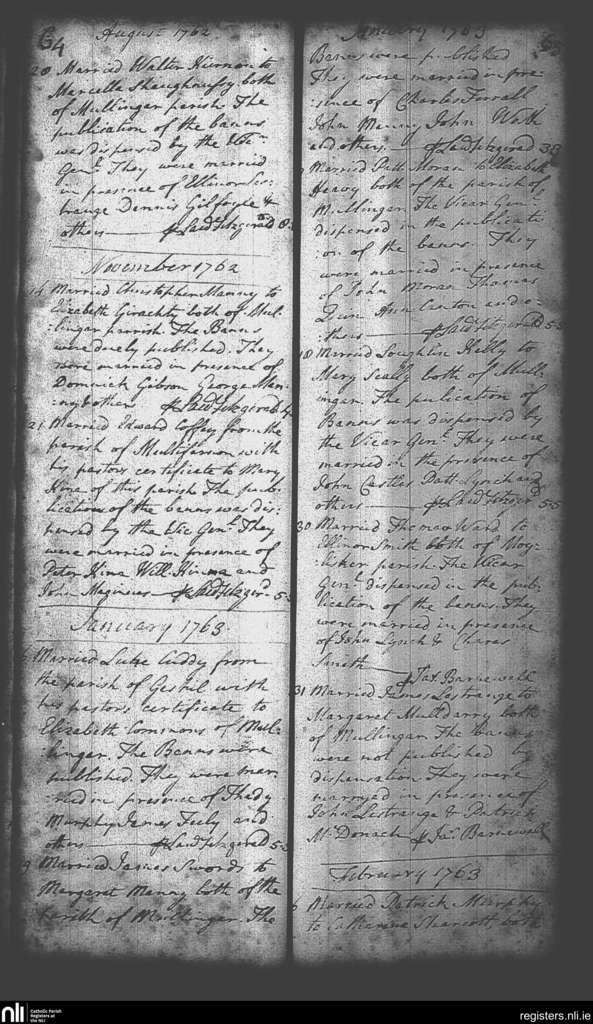 64
August 1762
20 Married Walter Kiernan to
Marcella Shaughnussy both
of Mullingar parish. The
publication of the banns
was dispensed by the
Genl. They were married
in presence of Ellinor Les-
trange Dennis Gilfoyle &
others
November 1762
14 Married Christopher Manny to
Elizabeth Giraghty both of Mul-
lingar parrish. The Banns
were duely published. They
were married in presence of
Dominick Gibson George Man-
ny & other
21 Married Edward Coffey from the
parish of Multifarnon with
his pastors certificate to Mary
Kina of this parish. The pub-
lication of the banns was dis-
pensed by the Vic Genl. They
were married in presence of
Peter Kina Will. and
John Maginess
January 1763
Married Luke Cuddy from
the parish of Geshil with
his pastors certificate to
Elizabeth Commons of Mul-
lingar. The Banns were
published. They were mar-
ried in presence of Thady
Murphy James Feely and
others
9 Married James Swords to
Margaret Manny both of the
Parish of Mullingar. The
January 1763
Banns were published
They were married in pre-
sence of Charles Farrall
John Manny John
and others.
Married Patt Moran to Elizabeth
Heavy both of the parish of
Mullingar. The Vicar Genl.
dispensed in the publicati-
on of the banns. They
were married in presence
of John Moran Thomas
Ann and o-
thers
18 Married Loughlin Kelly to
Mary Scally both of Mull-
ingar. The publication of
Banns was dispensed by
the Vicar Genl. They were
married in the presence of
John Castles Patt: Lynch and
others
30 Married Thomas Ward to
Ellinor Smith both of
parish. The Vicar
Genl. dispensed in the pub-
lication of the banns. They
were married in presence
of John Lynch &
Smith
Jas. Barnewall
31 Married James Lestrange to
Margaret Muldarry both
of Mullingar. The banns
were not published by
dispensation. They were
marryed in presence of
John Lestrange & Patrick
McDonach Jas. Barnewall
February 1763
6 Married Patrick Murphy
to Catharine both
nli
Catholic Parish
Registers at
the NLI
registers.nli.ie